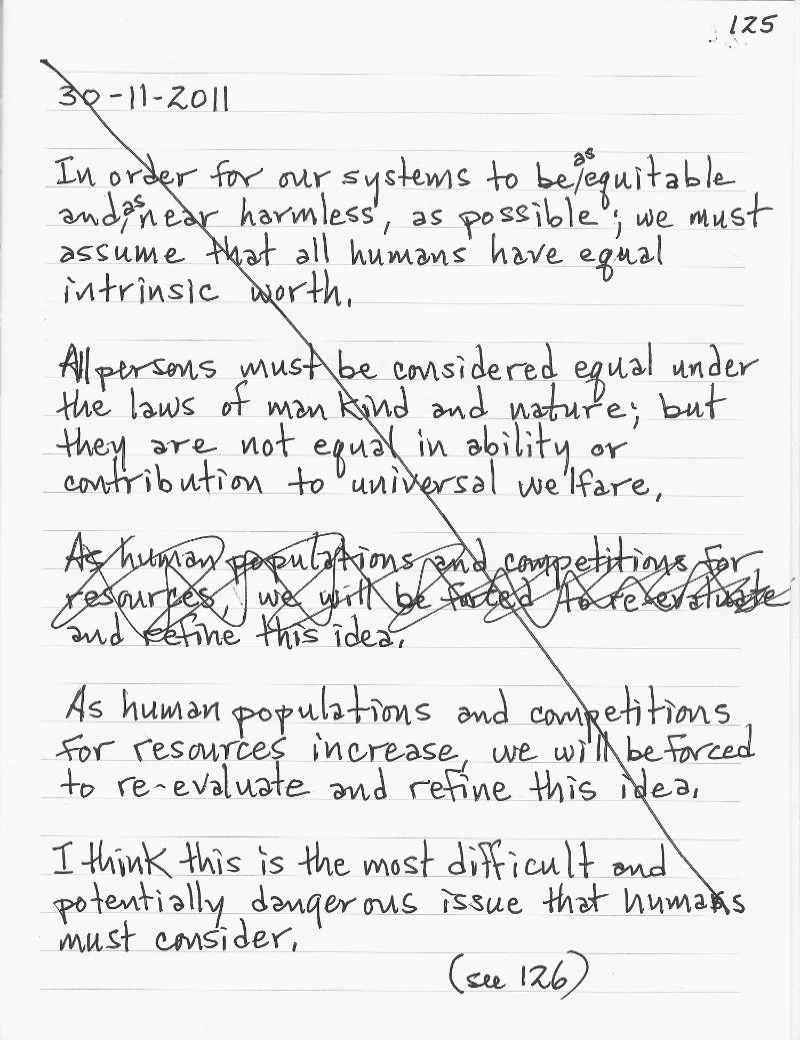 125
30-11-2011
In order for our systems to be as equitable
and, as near harmless, as possible; we must
assume that all humans have equal
intrinsic worth.
All persons must be considered equal under
the laws of man kind and nature; but
they are not equal in ability or
contribution to universal welfare.
As human populations and competitions for
resources, we will be forced to re-evaluate
and refine this idea.
As human populations and competitions
for resources increase, we will be forced
to re-evaluate and refine this idea.
I think this is the most difficult and
potentially dangerous issue that humans
must consider.
(see 126)